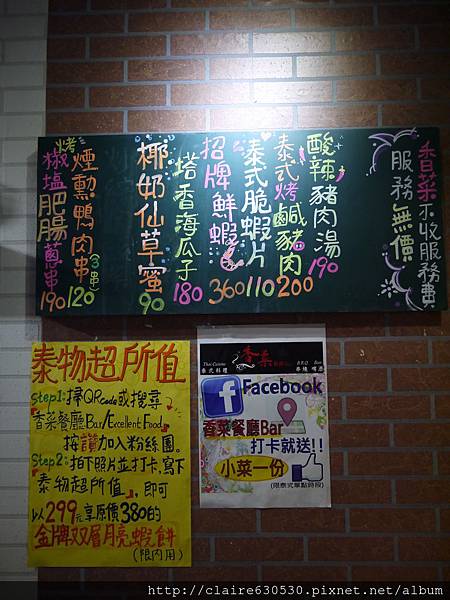 香菜不收服務費
服務無價
酸辣豬肉湯 190
泰式烤鹹豬肉 200
泰式脆蝦片 110
招牌鮮蝦 360
塔香海瓜子 180
椰奶仙草蜜 90
煙熏鴨肉串(3串) 120
烤椒塩肥腸蔥串 190
泰物超所值
Step1:掃QRcode或搜尋
『香菜餐廳Bar/Excellent Food』
按讚加入粉絲團。
Step2:拍下照片並打卡,寫下
『泰物超所值』,即可
以299元享原價380的
金牌双層月亮蝦餅
(限內用)
香菜
Thai Cuisine
泰式料理
B.B.Q Bar
串燒 嗜酒
f Facebook
香菜餐廳Bar
打卡就送!!
小菜一份
(限泰式單點時段)
http://claire630530.pixnet.net/album